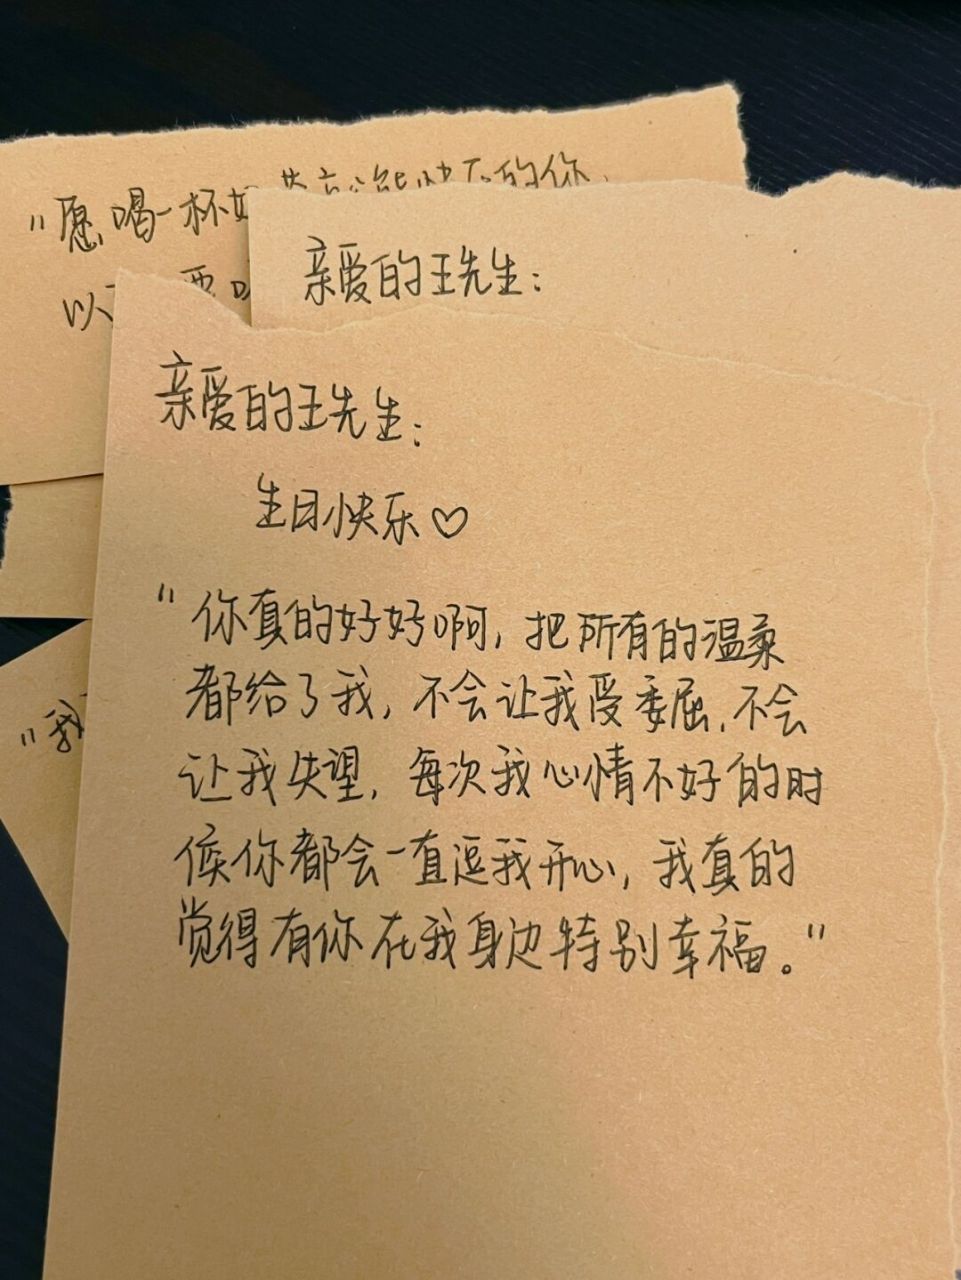 "愿喝一杯
以
亲爱的王先生：
亲爱的王先生：
生日快乐♡
"你真的好好啊，把所有的温柔
都给了我，不会让我受委屈，不会
让我失望，每次我心情不好的时
候你都会一直逗我开心，我真的
觉得有你在我身边特别幸福。"
"我